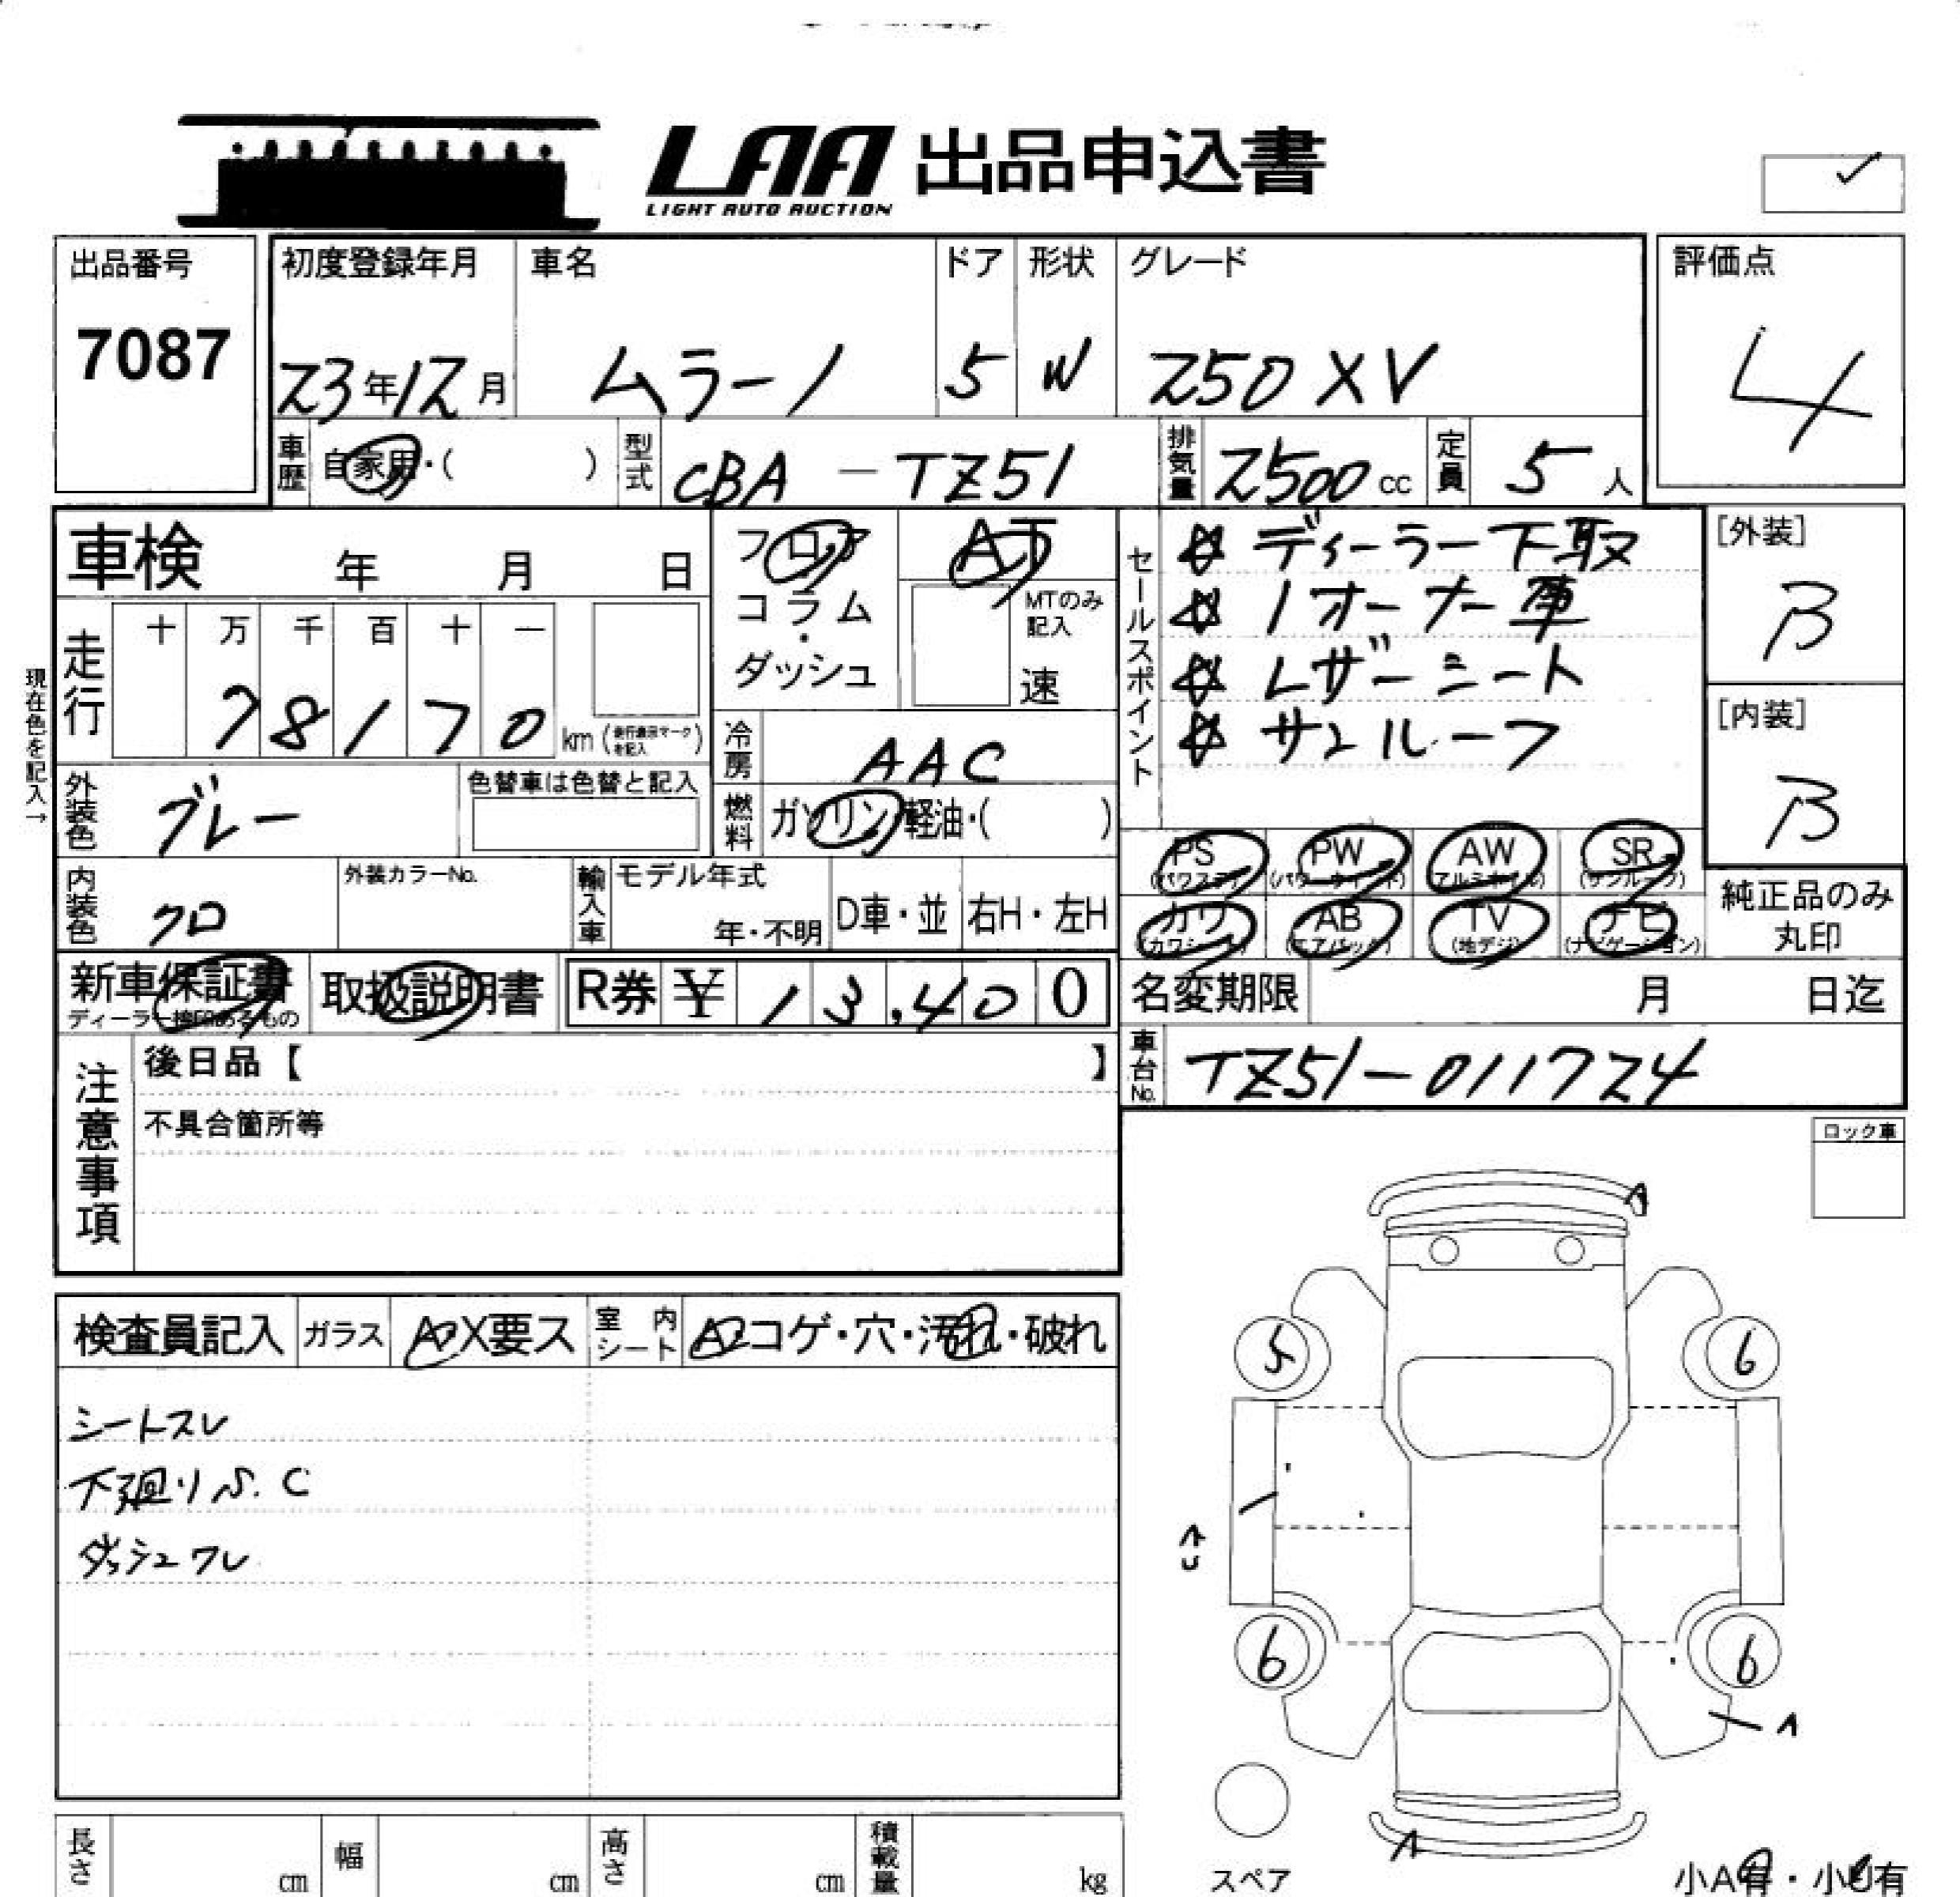 LAA 出品申込書
LIGHT AUTO AUCTION
出品番号
7087
初度登録年月 車名 ドア 形状 グレード
23年12月 ムラーノ 5 W 250XV
評価点
4
車歴 自家用・( ) 型式 CBA-TZ51 排気量 2500cc 定員 5人
車検 年 月 日
フロア AT
コラム
・
ダッシュ
MTのみ
記入
速
セールスポイント
☆ ディーラー下取
☆ 1オーナー車
☆ レザーシート
☆ サンルーフ
[外装]
B
[内装]
B
現在色を記入→
走行 十 万 千 百 十 一
78170 km(走行表示マークを記入)
冷房 AAC
外装色 グレー 色替車は色替と記入
燃料 ガソリン・軽油・( )
PS (パワステ) PW (パワーウインド) AW (アルミホイル) SR (サンルーフ)
カワ (カワシート) AB (エアバック) TV (地デジ) ナビ (ナビゲーション)
純正品のみ
丸印
内装色 クロ 外装カラーNo. 輸入車 モデル年式 年・不明 D車・並 右H・左H
新車保証書 ディーラー捺印あるもの 取扱説明書 R券 ¥ 13,400
名変期限 月 日迄
車台No. TZ51-011724
注意事項
後日品【 】
不具合箇所等
ロック車
検査員記入 ガラス A・X要ス 室内シート A・コゲ・穴・汚れ・破れ
シートスレ
下廻りS.C
ダッシュワレ
5 6
AU
6 6
A
A
A
スペア
小A有・小U有
長さ cm 幅 cm 高さ cm 積載量 kg